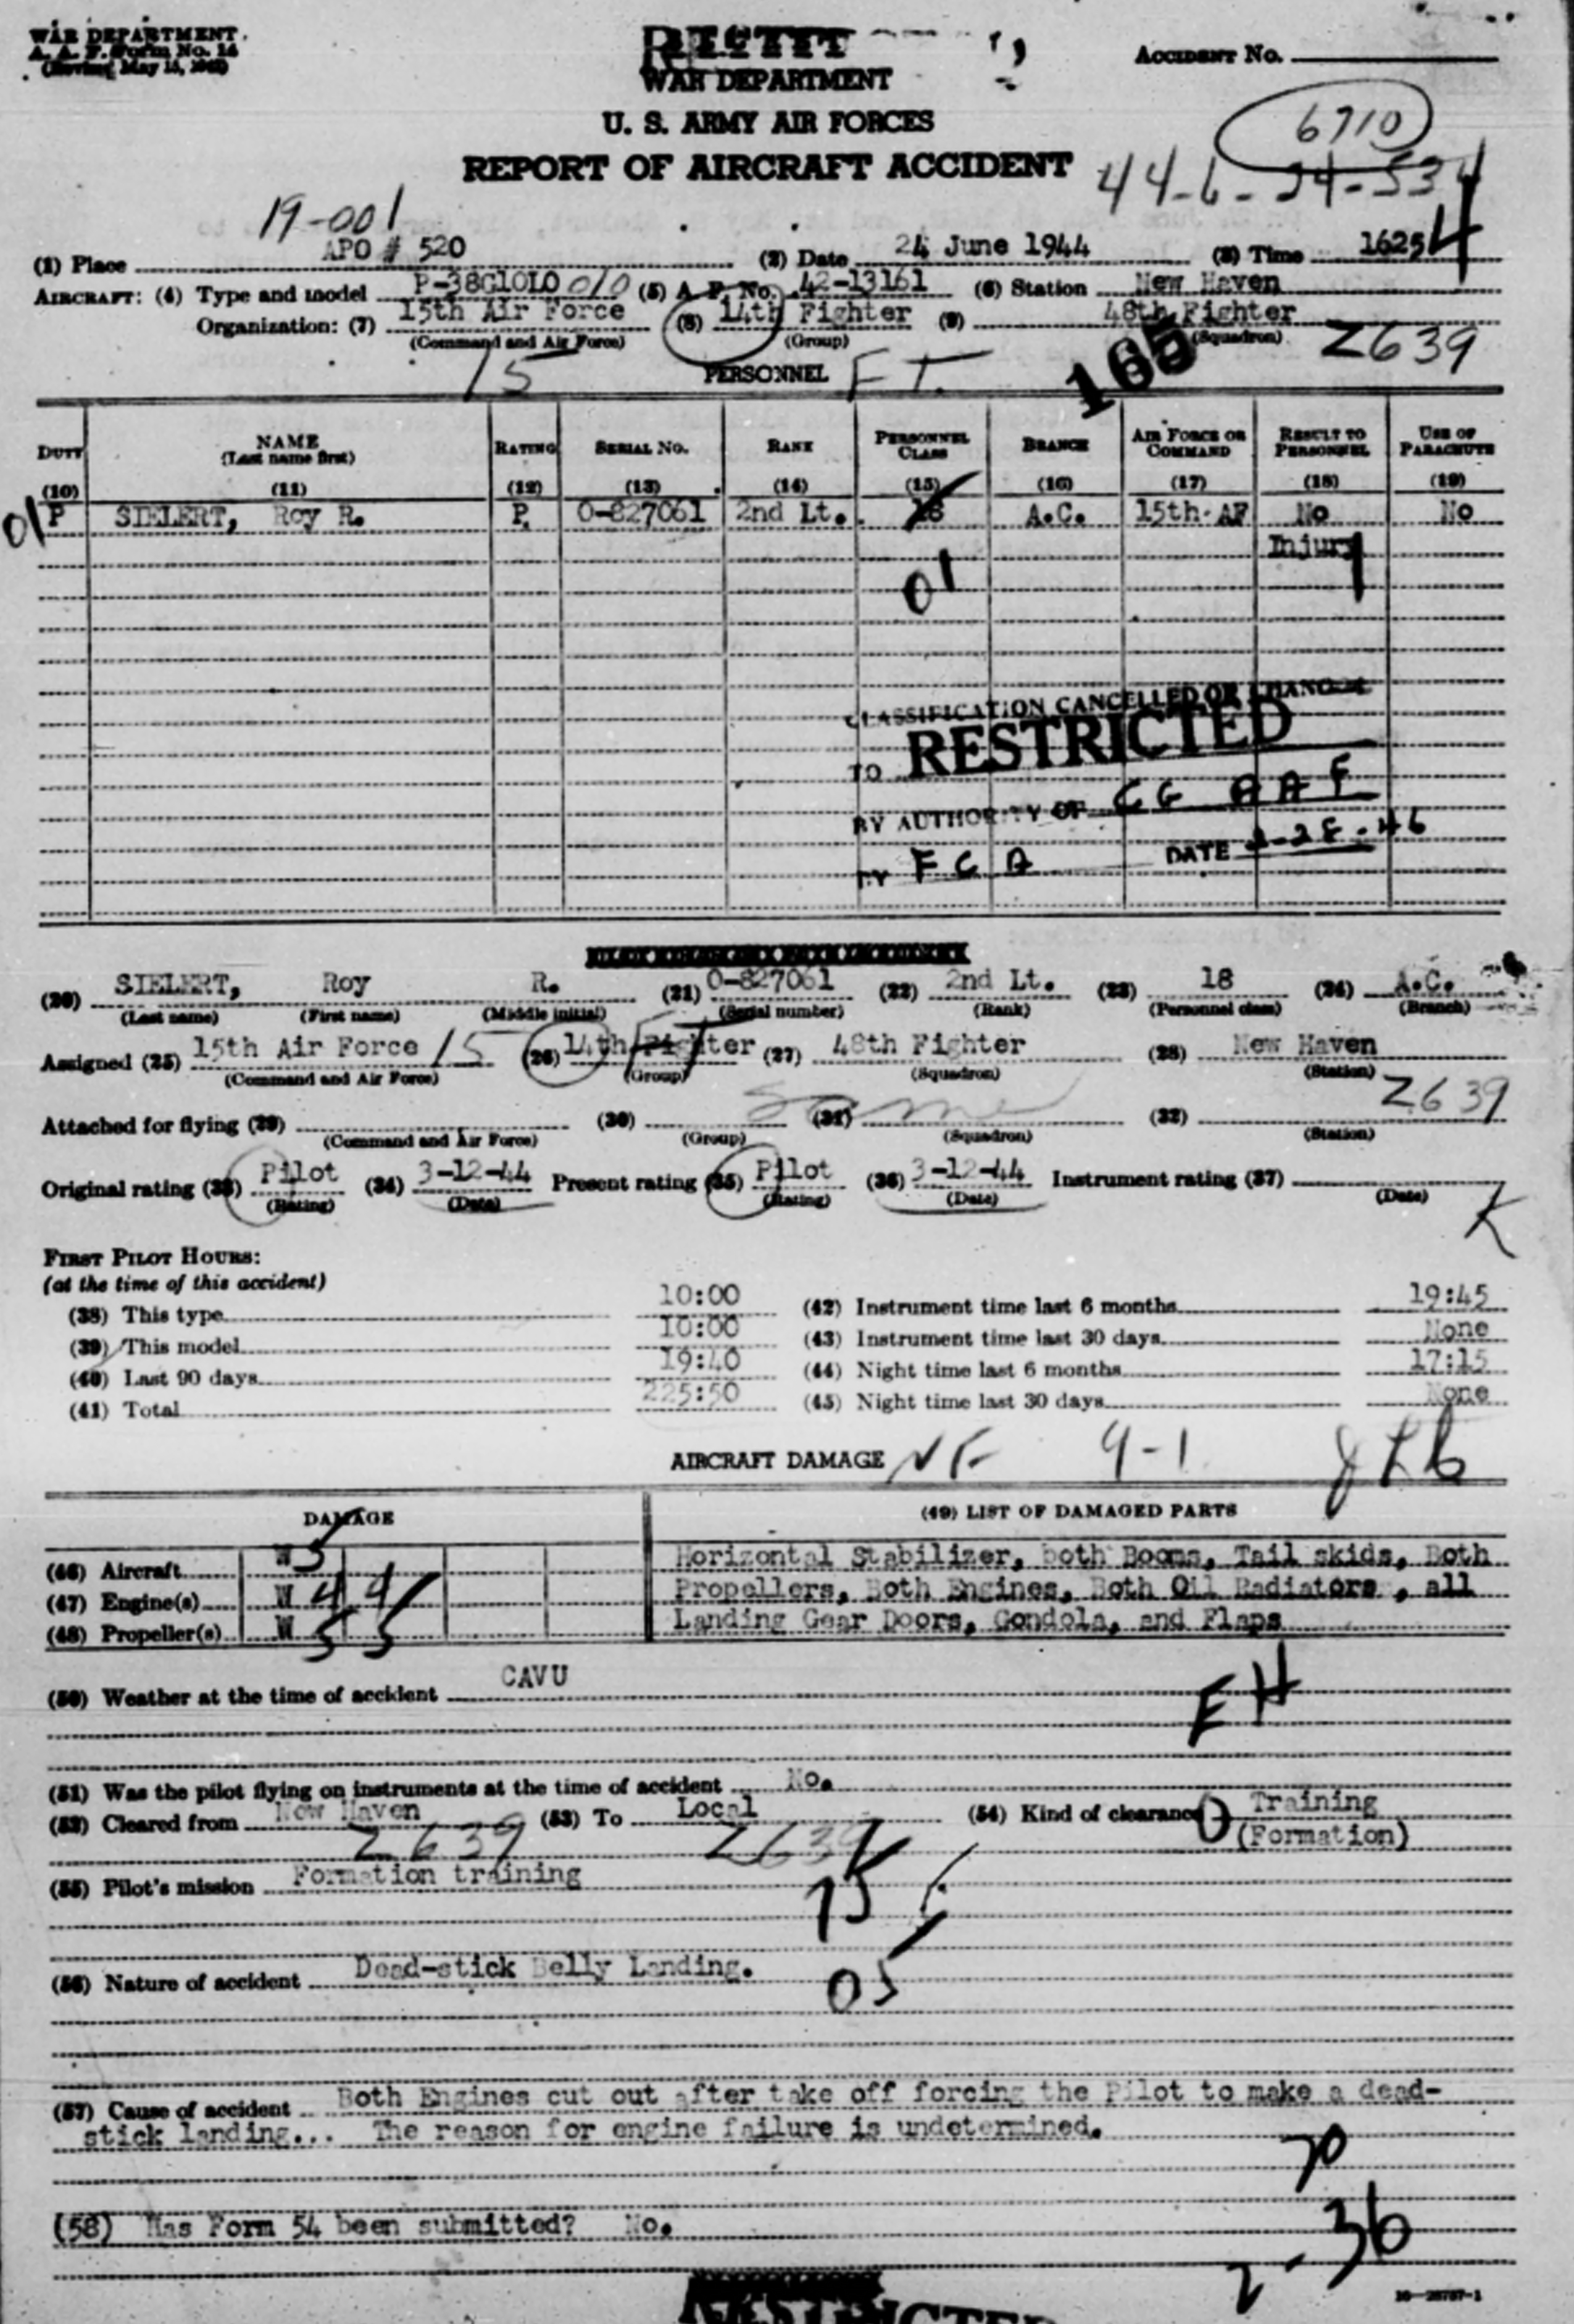 WAR DEPARTMENT
A. A. F. Form No. 14
(Revised May 15, 1942)
WAR DEPARTMENT
ACCIDENT No.
U. S. ARMY AIR FORCES
6710
REPORT OF AIRCRAFT ACCIDENT
44-6-24-534
19-001
4
(1) Place APO # 520 (2) Date 24 June 1944 (3) Time 1625
AIRCRAFT: (4) Type and model P-38G10LO 010 (5) A. F. No. 42-13161 (6) Station New Haven
Organization: (7) 15th Air Force (8) 14th Fighter (9) 48th Fighter
(Command and Air Force) (Group) (Squadron) 2639
15 PERSONNEL FT. 165
DUTY NAME (Last name first) RATING SERIAL No. RANK PERSONNEL CLASS BRANCH AIR FORCE OR COMMAND RESULT TO PERSONNEL USE OF PARACHUTE
(10) (11) (12) (13) (14) (15) (16) (17) (18) (19)
01 P SIELERT, Roy R. P. 0-827061 2nd Lt. 18 A.C. 15th AF No No
Injury
01
CLASSIFICATION CANCELLED OR CHANGED
TO RESTRICTED
BY AUTHORITY OF CG AAF
BY FCA DATE
(20) SIELERT, Roy R. (21) 0-827061 (22) 2nd Lt. (23) 18 (24) A.C.
(Last name) (First name) (Middle initial) (Serial number) (Rank) (Personnel class) (Branch)
Assigned (25) 15th Air Force 15 (26) 14th Fighter (27) 48th Fighter (28) New Haven
(Command and Air Force) (Group) (Squadron) (Station)
2639
Attached for flying (29) (30) Same (31) (32)
(Command and Air Force) (Group) (Squadron) (Station)
Original rating (33) Pilot (34) 3-12-44 Present rating (35) Pilot (36) 3-12-44 Instrument rating (37)
(Rating) (Date) (Rating) (Date) (Date)
K
FIRST PILOT HOURS:
(at the time of this accident)
(38) This type 10:00 (42) Instrument time last 6 months 19:45
(39) This model 10:00 (43) Instrument time last 30 days None
(40) Last 90 days 19:40 (44) Night time last 6 months 17:15
(41) Total 225:50 (45) Night time last 30 days None
AIRCRAFT DAMAGE 9-1
DAMAGE (49) LIST OF DAMAGED PARTS
(46) Aircraft 5 Horizontal Stabilizer, both Booms, Tail skids, Both
(47) Engine(s) W 4 4 Propellers, Both Engines, Both Oil Radiators, all
(48) Propeller(s) W 5 5 Landing Gear Doors, Gondola, and Flaps
(50) Weather at the time of accident CAVU
EH
(51) Was the pilot flying on instruments at the time of accident No.
(52) Cleared from New Haven (53) To Local (54) Kind of clearance Training
2639 2639 (Formation)
(55) Pilot's mission Formation training
(56) Nature of accident Dead-stick Belly Landing.
05
(57) Cause of accident Both Engines cut out after take off forcing the Pilot to make a dead-
stick landing... The reason for engine failure is undetermined.
70
(58) Has Form 54 been submitted? No.
36
16-28787-1
RESTRICTED